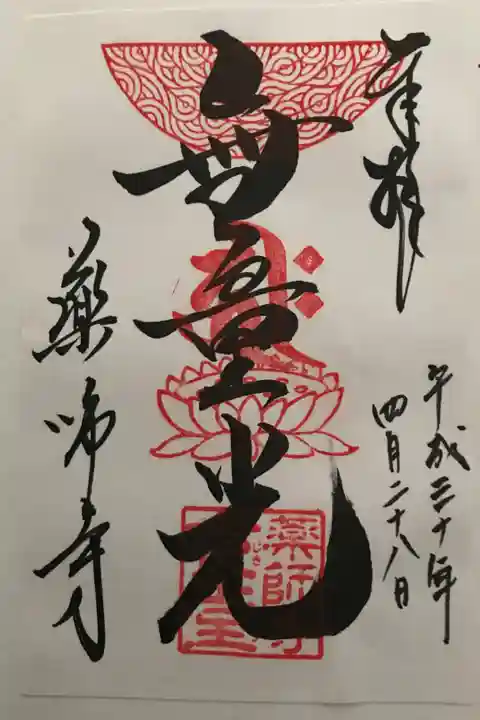 奉拝
平成三十年
四月二十八日
無量光
薬師寺
薬師寺